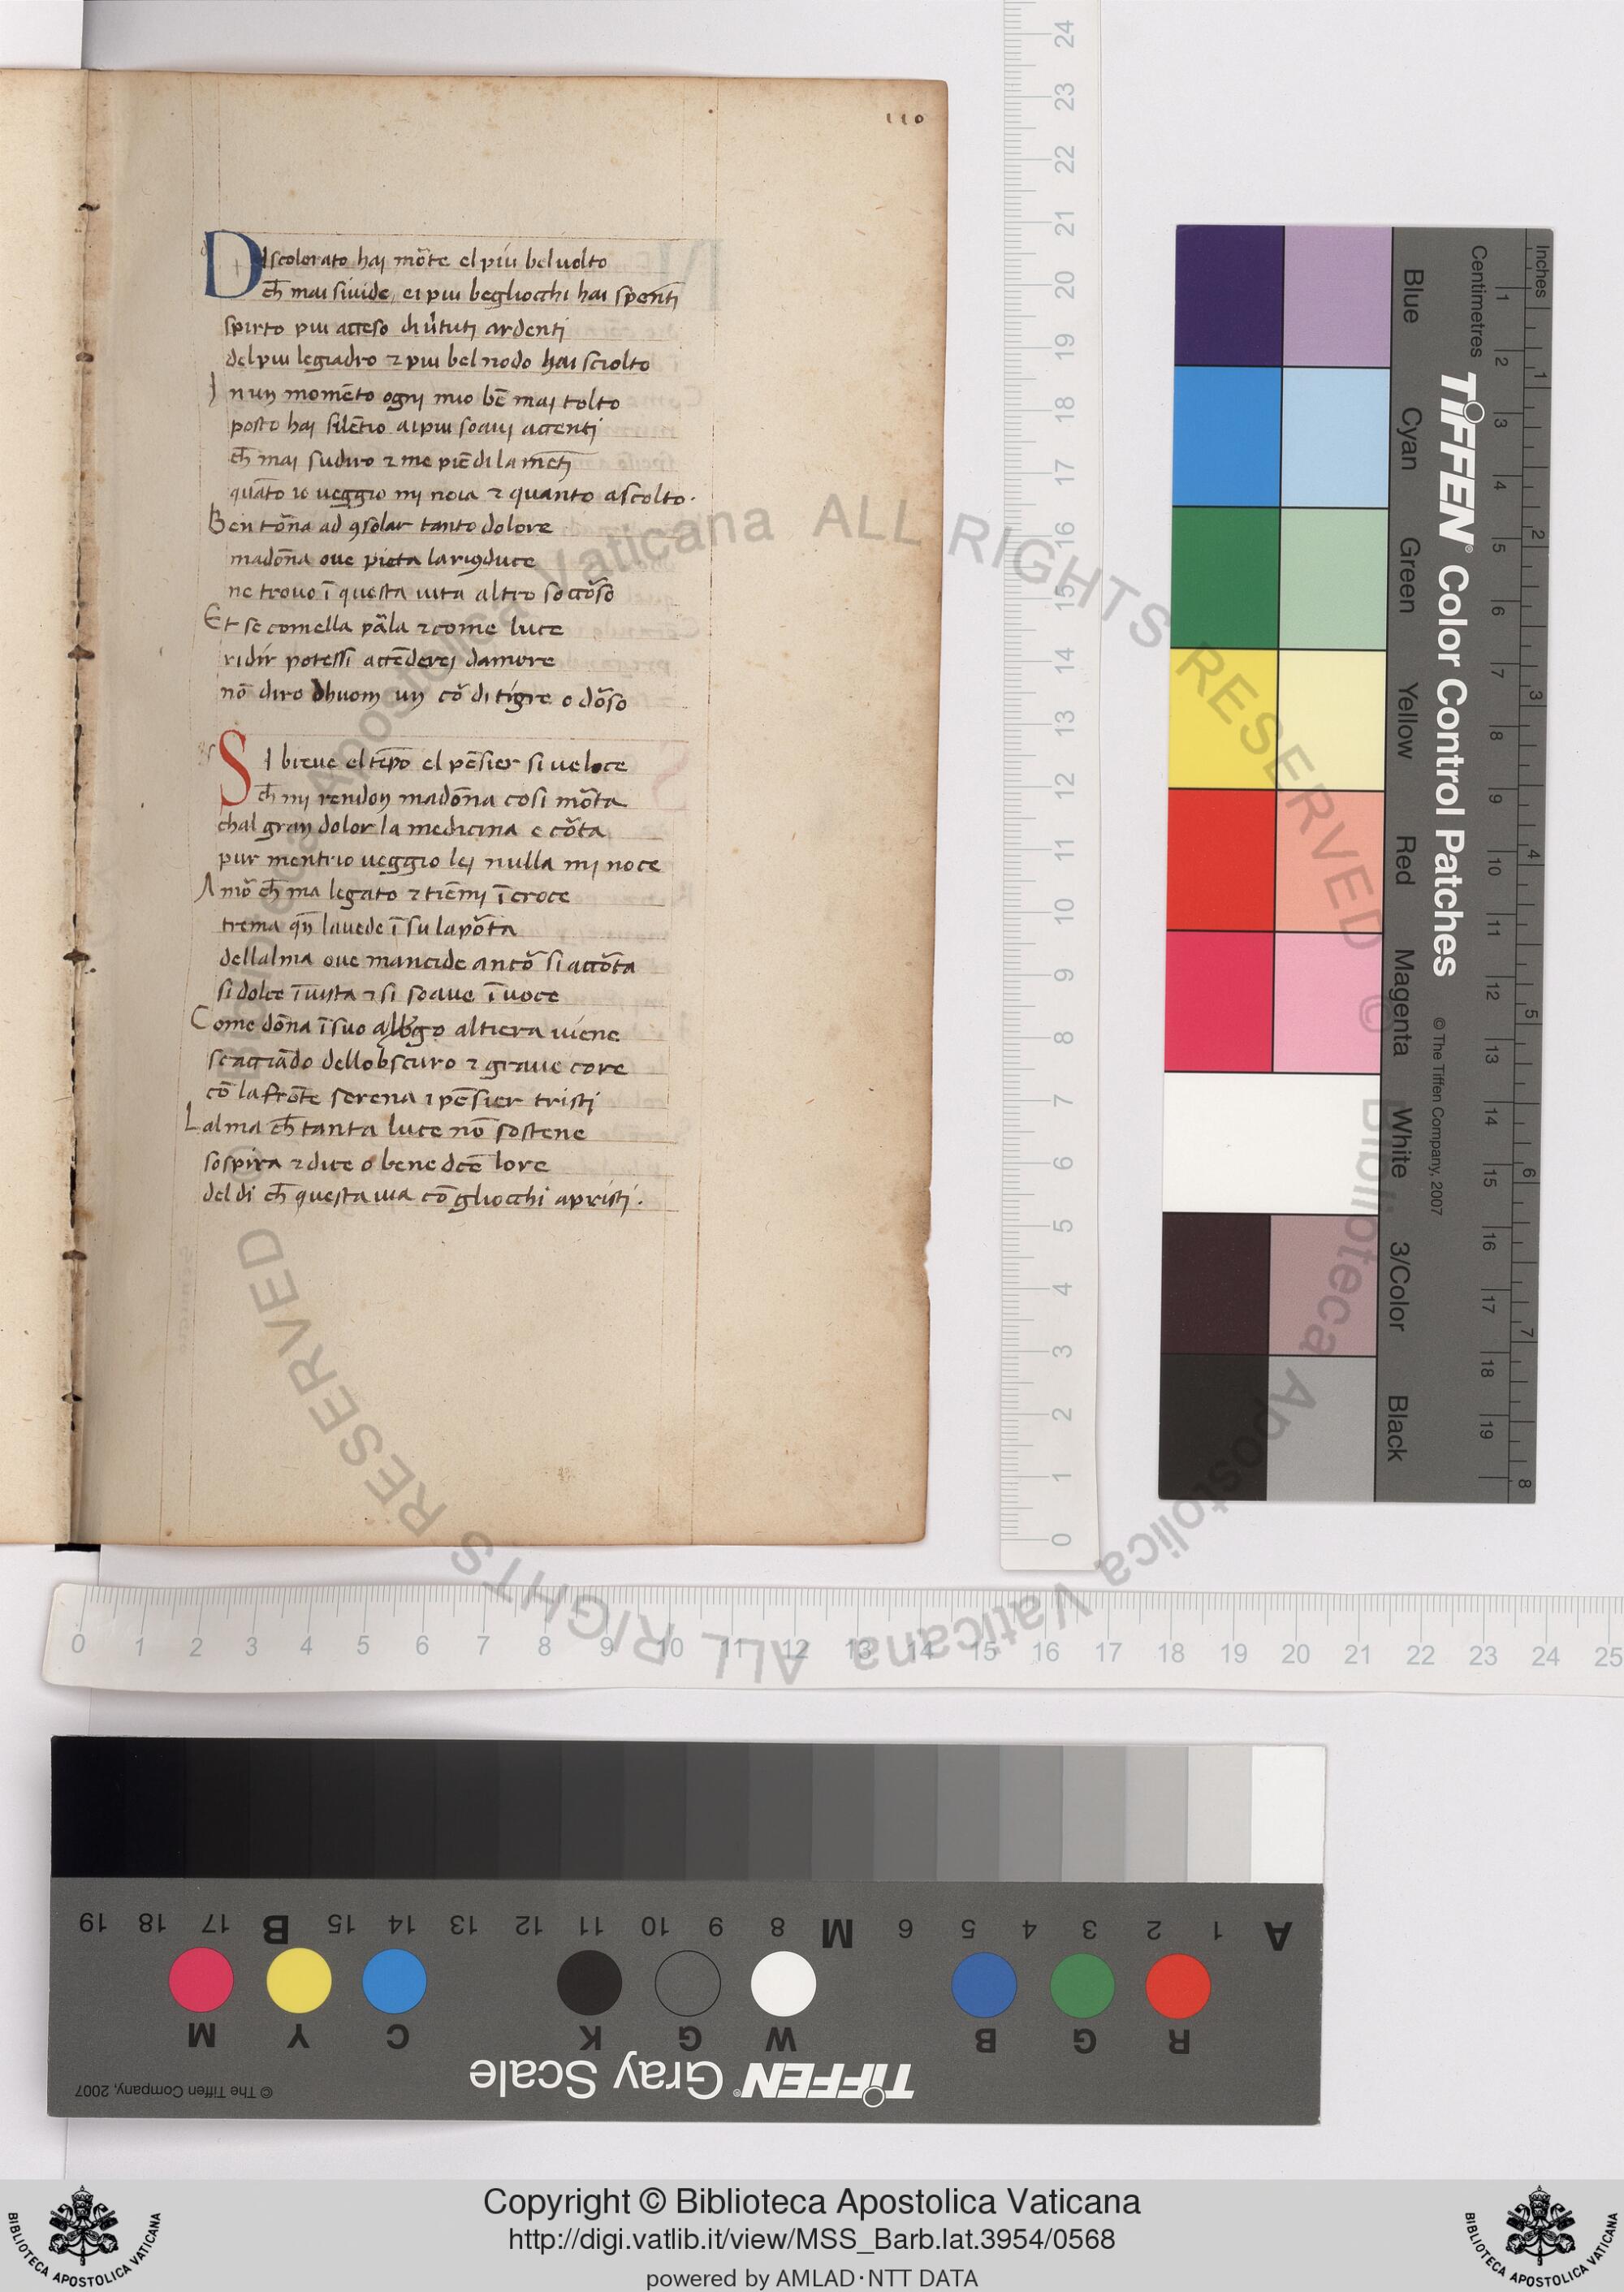 110
DIscolorato haj mõte el piu bel uolto
ch̃ mai si uide, ei piu begliocchi hai spenti
spirto piu acceso di ũtuti ardenti
del piu legiadro ⁊ piu bel nodo hai sciolto
In un momẽto ogni mio bẽ mai tolto
posto haj silẽtio ai piu soaui accenti
ch̃ mai sudiro ⁊ me piẽ di lamẽti
quãto io ueggio mi noia ⁊ quanto ascolto.
Ben tõna ad ꝯsolar tanto dolore
madõna oue pieta la riꝯduce
ne trouo ĩ questa uita altro soccõso
Et se comella pãla ⁊ come luce
ridir potessi accẽderei damore
nõ diro dhuom un cõ di tigre o dõso
SI breue el tẽpo el pẽsier si ueloce
ch̃ mi rendon madõna cosi mõta
chal gran dolor la medicina e cõta
pur mentrio ueggio lei nulla mi noce
Amõ ch̃ ma legato ⁊ tiẽmi ĩ croce
trema qñ la uede ĩ su la põta
dellalma oue mancide ancõ si accõta
si dolce ĩ uista ⁊ si soaue ĩ uoce
Come dõna ĩ suo albgo altiera uiene
scacciãdo dellobscuro ⁊ graue core
cõ la frõte serena i pẽsier tristi
Lalma ch̃ tanta luce nõ sostene
sospira ⁊ dice o benedcẽ lore
del di ch̃ questa uia cõ gliocchi apristi.
24
23
22
21
20
19
18
17
16
15
14
13
12
11
10
9
8
7
6
5
4
3
2
1
0
Inches
Centimetres
TIFFEN® Color Control Patches
© The Tiffen Company, 2007
Blue
Cyan
Green
Yellow
Red
Magenta
White
3/Color
Black
1 2 3 4 5 6 7 8 9 10 11 12 13 14 15 16 17 18 19
1 2 3 4 5 6 7 8
0 1 2 3 4 5 6 7 8 9 10 11 12 13 14 15 16 17 18 19 20 21 22 23 24 25
A 1 2 3 4 5 6 M 8 9 10 11 12 13 14 15 B 17 18 19
R G B W G K C Y M
TIFFEN® Gray Scale
© The Tiffen Company, 2007
© Biblioteca Apostolica Vaticana ALL RIGHTS RESERVED © Biblioteca Apostolica Vaticana ALL RIGHTS RESERVED
Copyright © Biblioteca Apostolica Vaticana
http://digi.vatlib.it/view/MSS_Barb.lat.3954/0568
powered by AMLAD·NTT DATA
BIBLIOTECA APOSTOLICA VATICANA
BIBLIOTECA APOSTOLICA VATICANA